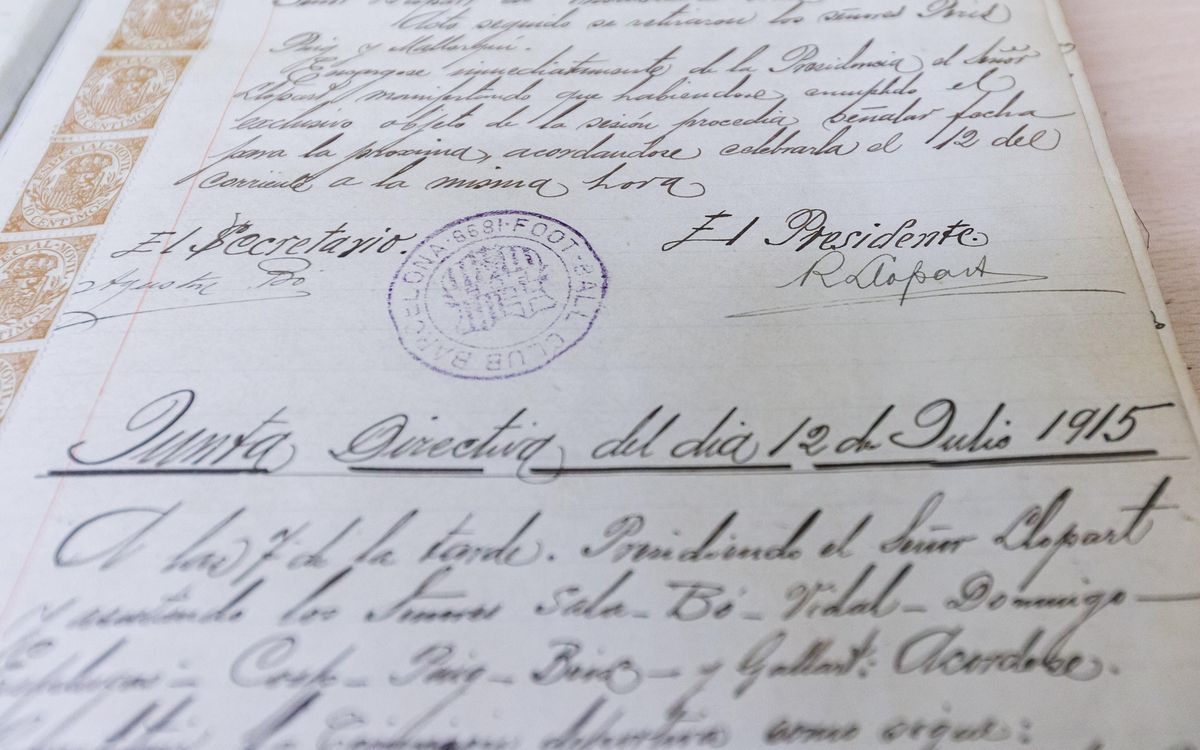 Acto seguido se retiraron los señores Peris
Puig y Mallorquí.
Encargose inmediatamente de la Presidencia el Señor
Llopart, manifestando que habiendose cumplido el
exclusivo objeto de la sesión procedia señalar fecha
para la próxima, acordandose celebrarla el 12 del
corriente a la misma hora
El Secretario.
Agustín Bó
FOOT-BALL CLUB BARCELONA·1899·
El Presidente.
R Llopart
ESPECIAL MOVIL
10 CENTIMOS
Junta Directiva del dia 12 de Julio 1915
A las 7 de la tarde. Presidiendo el Señor Llopart
y asistiendo los Señores Sala - Bó - Vidal - Domingo -
- Puig - - y Gallart: Acordose.
la deportiva como sigue: